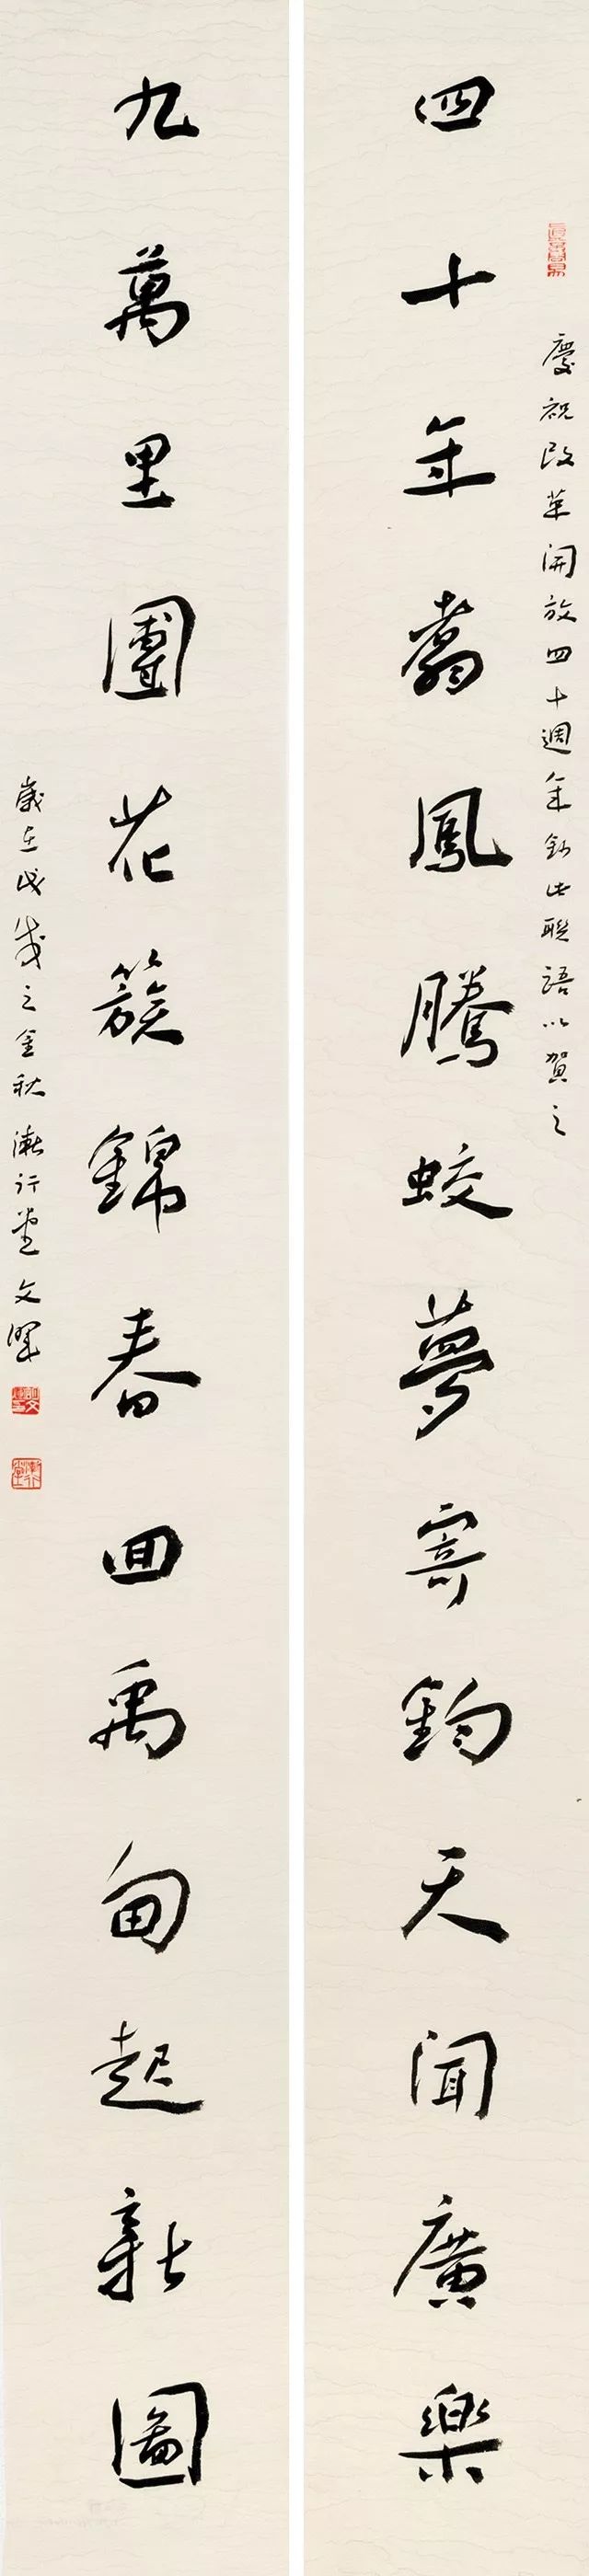 慶祝改革開放四十週年鈔此聯語以賀之
四十年翥鳳騰蛟夢寄鈞天聞廣樂
九萬里團花簇錦春回禹甸起新圖
歲在戊戌之金秋漸行堂文暉